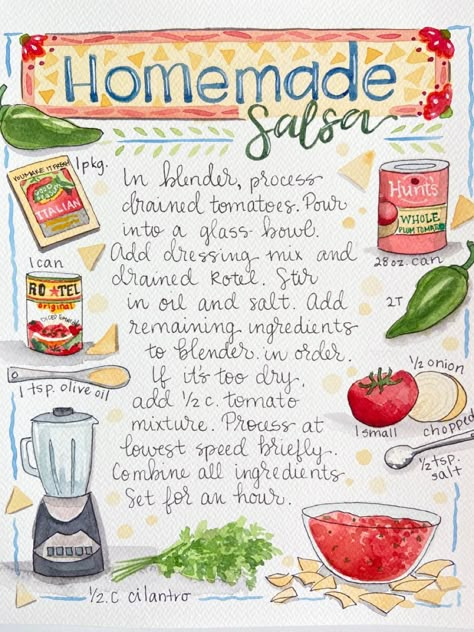 Homemade
Salsa
1 pkg.
YOU MAKE IT FRESH
GOOD
SEASONS
ITALIAN
1 can
RO★TEL
original
DICED TOMATOES
1 tsp. olive oil
In blender, process
drained tomatoes. Pour
into a glass bowl.
Add dressing mix and
drained Rotel. Stir
in oil and salt. Add
remaining ingredients
to blender in order.
If it's too dry,
add 1/2 c. tomato
mixture. Process at
lowest speed briefly.
Combine all ingredients
Set for an hour.
Hunt's
WHOLE
PLUM TOMATO
28 oz. can
2T
1/2 onion
chopped
1 small
1/2 tsp.
salt
1/2 c cilantro